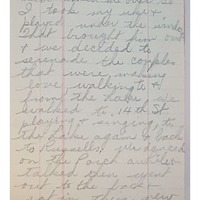 I took my uke &
played under the window
That brought him out
& we decided to
serenade the couples
that were making
love walking to &
from the lake. We
walked to 14th St
playing & singing to
the lake again & back
to Russells. We danced
on the Porch and
talked then went
out to the